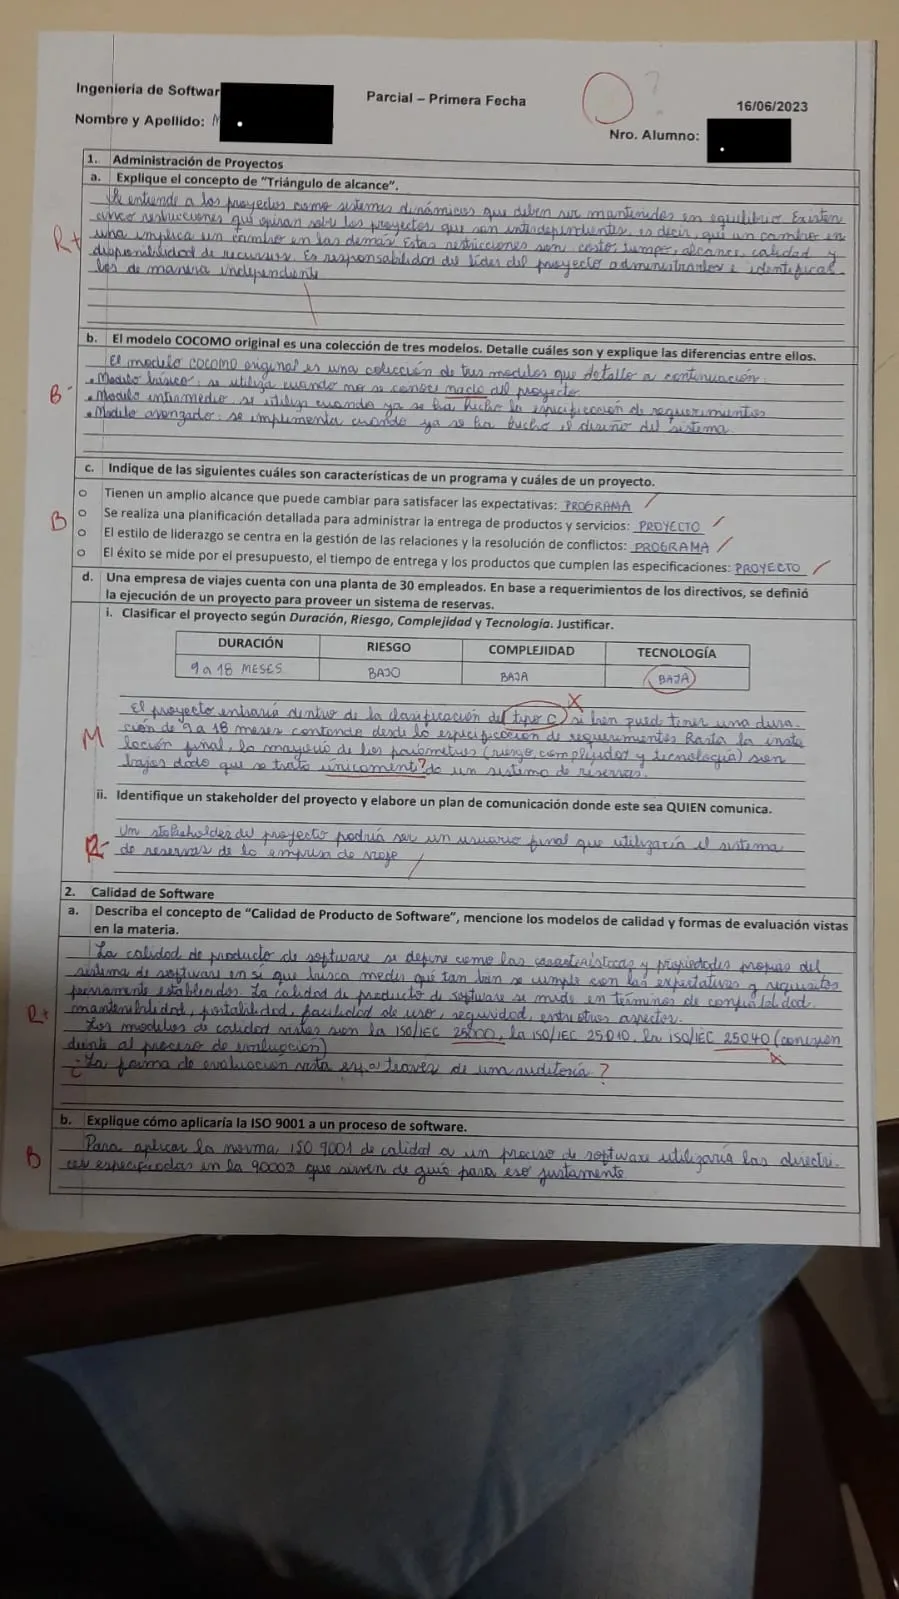 Ingeniería de Softwar
Parcial – Primera Fecha
16/06/2023
Nombre y Apellido:
Nro. Alumno:
1. Administración de Proyectos
a. Explique el concepto de "Triángulo de alcance".
Se entiende a los proyectos como sistemas dinámicos que deben ser mantenidos en equilibrio. Existen
cinco restricciones que operan sobre los proyectos que son interdependientes, es decir, que un cambio en
R+
una implica un cambio en las demás. Estas restricciones son: costo, tiempo, alcance, calidad y
disponibilidad de recursos. Es responsabilidad del líder del proyecto administrarlos e identificar
los de manera independiente
b. El modelo COCOMO original es una colección de tres modelos. Detalle cuáles son y explique las diferencias entre ellos.
El modelo COCOMO original es una colección de tres modelos que detallo a continuación:
• Modelo básico: se utiliza cuando no se conoce nada del proyecto
B-
• Modelo intermedio: se utiliza cuando ya se ha hecho la especificación de requerimientos
• Modelo avanzado: se implementa cuando ya se ha hecho el diseño del sistema.
c. Indique de las siguientes cuáles son características de un programa y cuáles de un proyecto.
○ Tienen un amplio alcance que puede cambiar para satisfacer las expectativas: PROGRAMA
B
○ Se realiza una planificación detallada para administrar la entrega de productos y servicios: PROYECTO
○ El estilo de liderazgo se centra en la gestión de las relaciones y la resolución de conflictos: PROGRAMA
○ El éxito se mide por el presupuesto, el tiempo de entrega y los productos que cumplen las especificaciones: PROYECTO
d. Una empresa de viajes cuenta con una planta de 30 empleados. En base a requerimientos de los directivos, se definió
la ejecución de un proyecto para proveer un sistema de reservas.
i. Clasificar el proyecto según Duración, Riesgo, Complejidad y Tecnología. Justificar.
DURACIÓN RIESGO COMPLEJIDAD TECNOLOGÍA
9 a 18 MESES BAJO BAJA BAJA
El proyecto entraría dentro de la clasificación del tipo C, si bien puede tener una dura-
ción de 9 a 18 meses contando desde la especificación de requerimientos hasta la insta
M
lación final, la mayoría de los parámetros (riesgo, complejidad y tecnología) son
bajos dado que se trata únicamente? de un sistema de reservas.
ii. Identifique un stakeholder del proyecto y elabore un plan de comunicación donde este sea QUIEN comunica.
Un stakeholder del proyecto podría ser un usuario final que utilizaría el sistema
R-
de reservas de la empresa de viaje
2. Calidad de Software
a. Describa el concepto de "Calidad de Producto de Software", mencione los modelos de calidad y formas de evaluación vistas
en la materia.
La calidad de producto de software se define como las características y propiedades propias del
sistema de software en sí que busca medir qué tan bien se cumple con las expectativas y requisitos
previamente establecidos. La calidad de producto de software se mide en términos de confiabilidad,
R+
mantenibilidad, portabilidad, facilidad de uso, seguridad, entre otros aspectos.
Los modelos de calidad vistos son la ISO/IEC 25000, la ISO/IEC 25010, la ISO/IEC 25040 (
al proceso de evaluación)
¿La forma de evaluación vista es a través de una auditoría.?
b. Explique cómo aplicaría la ISO 9001 a un proceso de software.
Para aplicar la norma ISO 9001 de calidad a un proceso de software utilizaría las directri-
B
ces especificadas en la 90003 que sirven de guía para eso justamente.